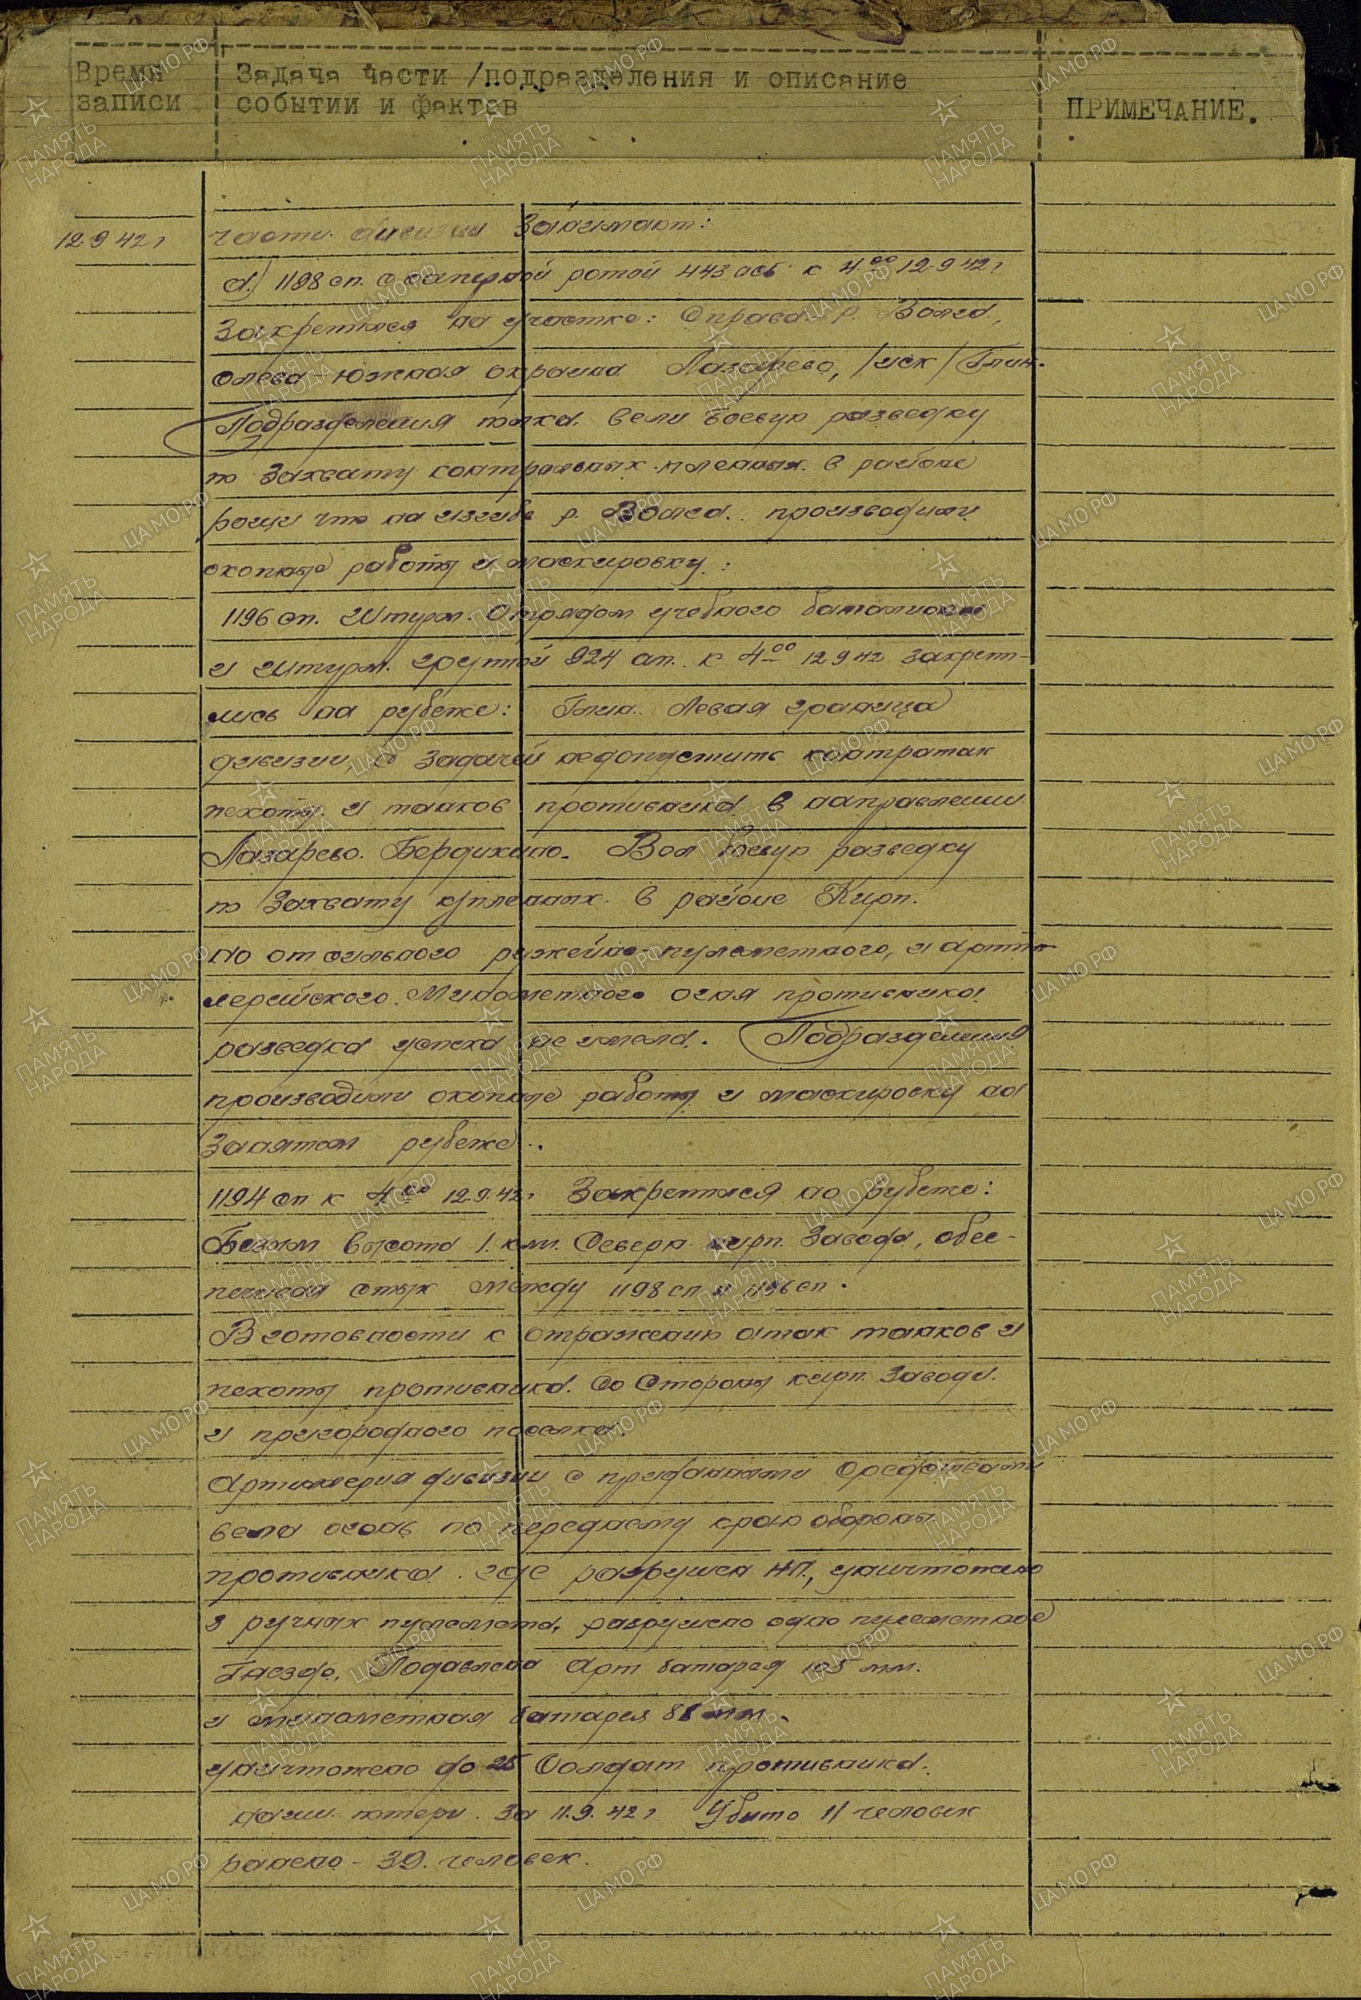 Время записи
Задача части /подразделения и описание
событий и фактов
ПРИМЕЧАНИЕ.
12.9.42 г
Части дивизии Занимают:
а.) 1198 сп. с саперной ротой 443 осб к 4.00 12.9.42 г
Закрепился на участке: Справа р. Волга,
слева - южная окраина Лазарево, /иск/ Глин.
Подразделения полка вели Боевую разведку
по Захвату контрольных пленных в районе
рощи что на изгибе р. Волга. производили
окопные работы и маскировку:
1196 сп. Штурм. Отрядом учебного батальона
и штурм. группой 924 ап. к 4.00 12.9.42 Закрепи-
лись на рубеже: Глин. Левая граница
дивизии, с Задачей недопустить контратак
пехоты и танков противника в направлении
Лазарево. Бердихино. Вел боевую разведку
по Захвату к/пленных. в районе Кирп.
но от сильного ружейно-пулеметного, и артил-
лерийского. Минометного огня противника
разведка успеха не имела. Подразделения
производили окопные работы и маскировку на
Занятом рубеже..
1194 сп к 4.00 12.9.42 г Закрепился на рубеже:
Безым высота 1. клм. Северн. кирп. Завода, обес-
печивая стык Между 1198 сп и 1196 сп.
В готовности к отражению атак танков и
пехоты противника. Со Стороны кирп. Завода.
и пригородного поселка.
Артиллерия дивизии с приданными Средствами
вела огонь по переднему краю обороны
противника. где разрушен НП., уничтожено
3 ручных пулемета, разрушено одно пулеметное
Гнездо, Подавлена Арт батарея 105 мм.
и минометная батарея 81 мм.
уничтожено до 25 Солдат противника.
наши потери. За 11.9.42 г Убито 11 человек
ранено - 39. человек.